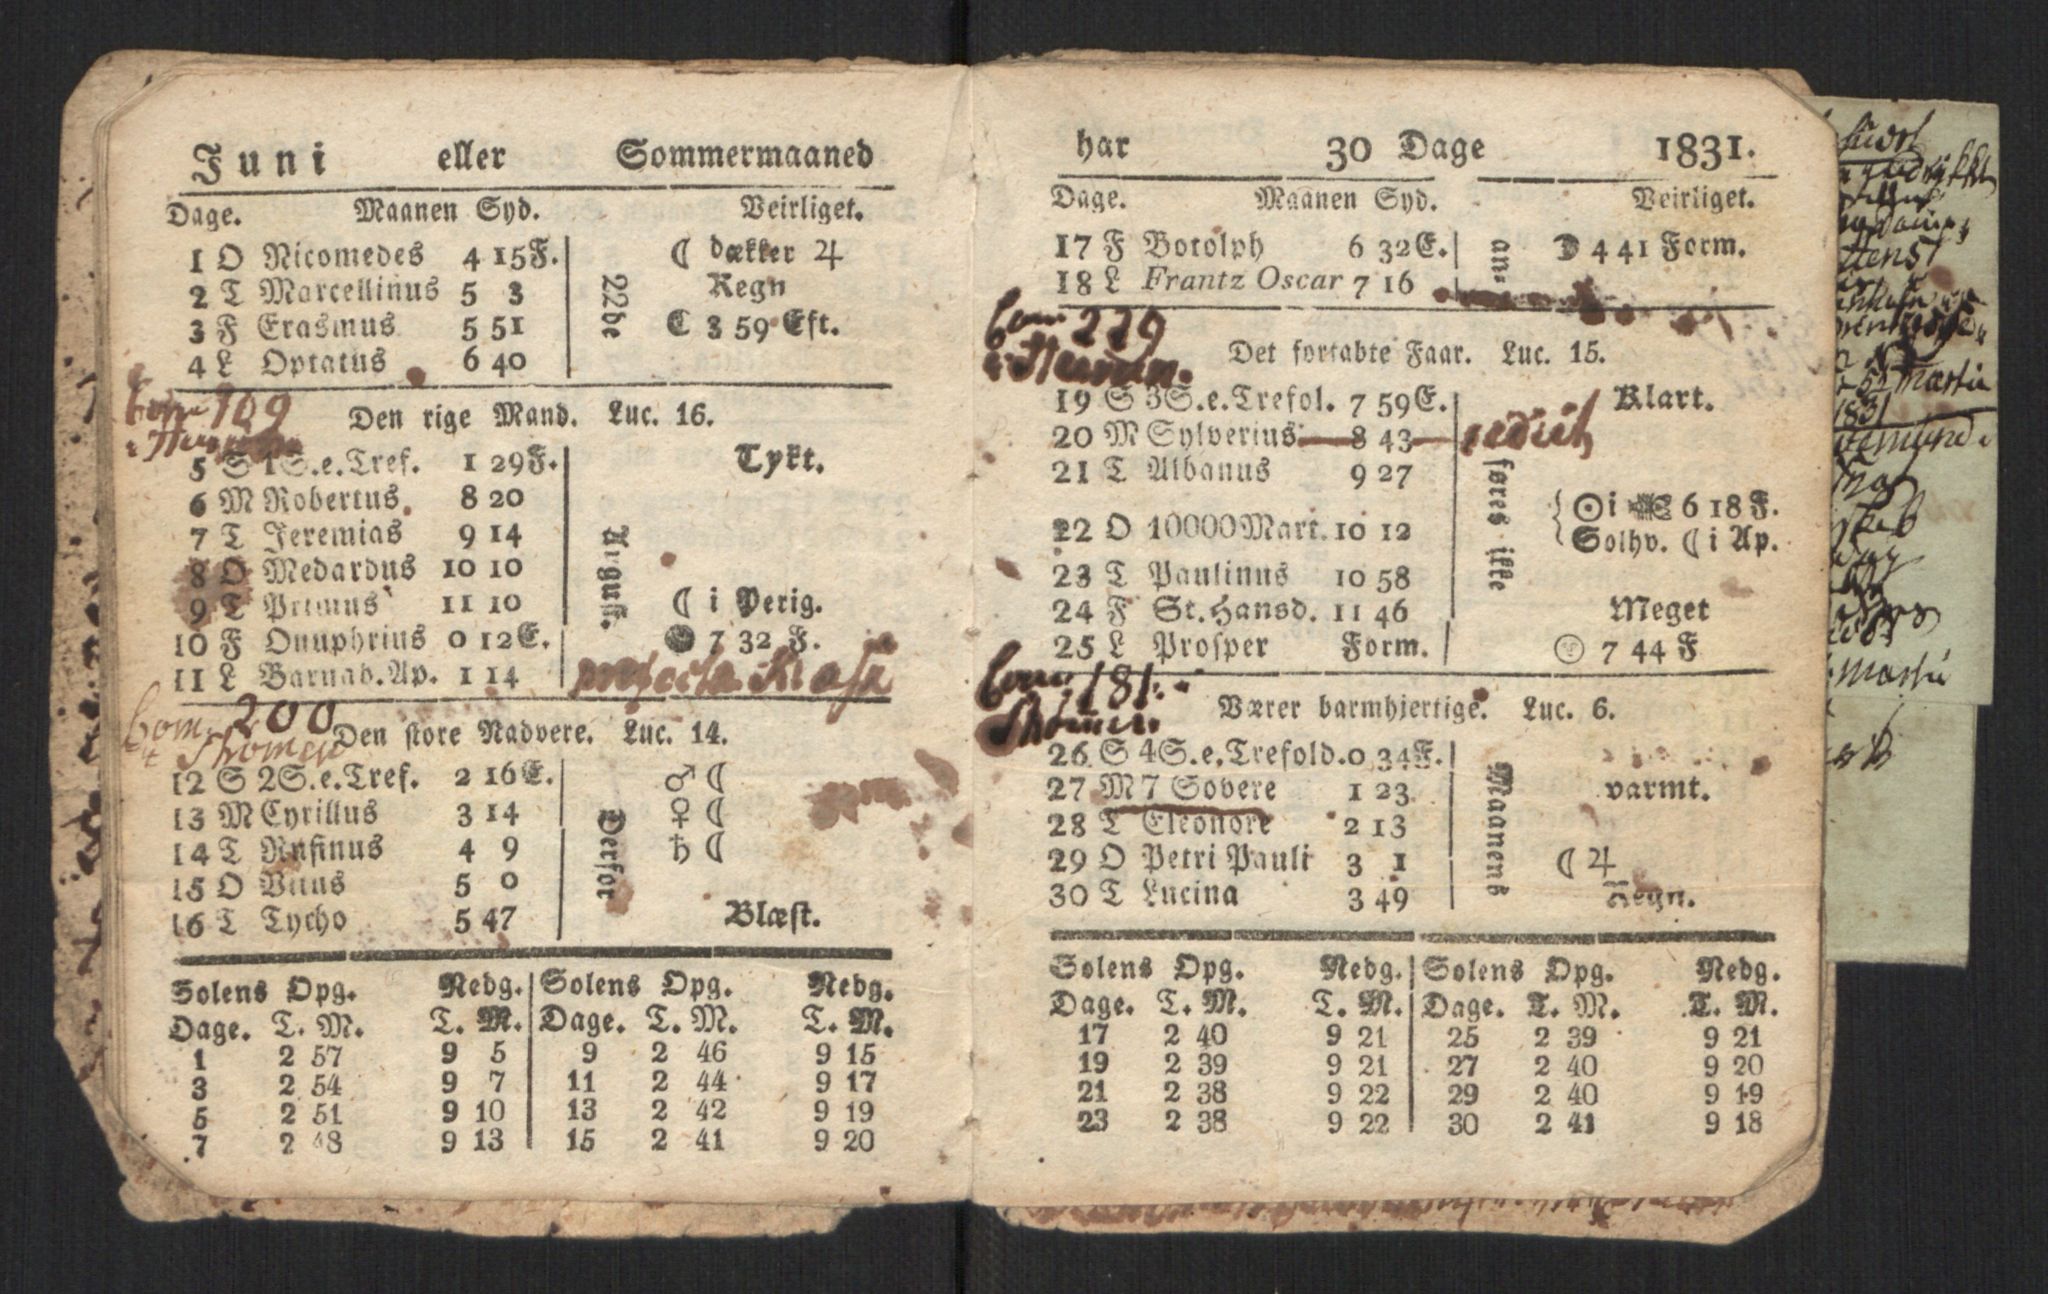 Juni eller Sommermaaned
Dage. Maanen Syd. Veirliget.
1 O Nicomedes 4 15F. ☾ dækker ♃
2 T Marcellinus 5 3 Regn
3 F Erasmus 5 51 22de ☾ 3 59 Eft.
4 L Optatus 6 40
109
Den rige Mand. Luc. 16.
5 S 1S.e.Tref. 1 29F. Tykt.
6 M Robertus 8 20
7 T Jeremias 9 14
8 O Medardus 10 10 August.
9 T Primus 11 10 ☾ i Perig.
10 F Onuphrius 0 12E. ● 7 32 F.
11 L Barnab. Ap. 1 14
200
Den store Nadvere. Luc. 14.
12 S 2S.e.Tref. 2 16E. ♂ ☾
13 M Cyrillus 3 14 ♀ ☾
14 T Rufinus 4 9 Derfor ♄ ☾
15 O Vitus 5 0
16 T Tycho 5 47 Blæst.
Solens Opg. Nedg. Solens Opg. Nedg.
Dage. T. M. T. M. Dage. T. M. T. M.
1 2 57 9 5 9 2 46 9 15
3 2 54 9 7 11 2 44 9 17
5 2 51 9 10 13 2 42 9 19
7 2 48 9 13 15 2 41 9 20
har 30 Dage 1831.
Dage. Maanen Syd. Veirliget.
17 F Botolph 6 32E. an= ☽ 4 41 Form.
18 L Frantz Oscar 7 16
229
Det fortabte Faar. Luc. 15.
19 S 3S.e.Trefol. 7 59E. Klart.
20 M Sylverius 8 43
21 T Albanus 9 27
føres ikke ☉ i ♋ 6 18 F.
22 O 10000 Mart. 10 12 Solhv. ☾ i Ap.
23 T Paulinus 10 58
24 F St. Hansd. 11 46 Meget
25 L Prosper Form. ☺ 7 44 F
181
Værer barmhjertige. Luc. 6.
26 S 4S.e.Trefold. 0 34F.
27 M 7 Sovere 1 23 varmt.
28 T Eleonore 2 13 Maanens
29 O Petri Pauli 3 1 ☾ ♃
30 T Lucina 3 49 Regn.
Solens Opg. Nedg. Solens Opg. Nedg.
Dage. T. M. T. M. Dage. T. M. T. M.
17 2 40 9 21 25 2 39 9 21
19 2 39 9 21 27 2 40 9 20
21 2 38 9 22 29 2 40 9 19
23 2 38 9 22 30 2 41 9 18
1831